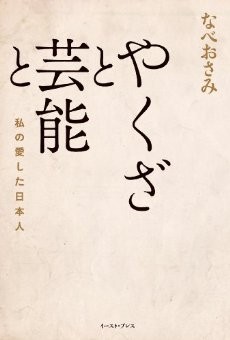 なべおさみ
やくざと
芸能と
私の愛した日本人
イースト・プレス